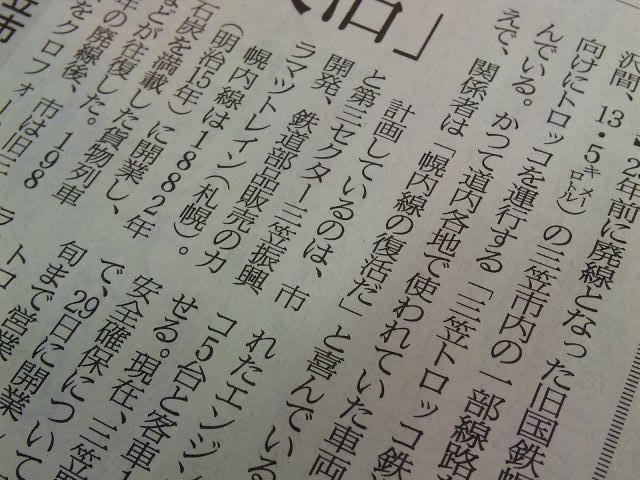 活」
22年前に廃線となった旧国鉄幌
沢間、13・5キロメートル）の三笠市内の一部線路
向けにトロッコを運行する「三笠トロッコ鉄
んでいる。かつて道内各地で使われていた車両
えで、関係者は「幌内線の復活だ」と喜んでいる
計画しているのは、市
と第三セクター三笠振興
開発、鉄道部品販売のカ
ラマツトレイン（札幌）。
幌内線は1882年
（明治15年）に開業し、
石炭を満載した貨物列車
などが往復した。198
年の廃線後、市は旧三
をクロフォー
笠市
れたエンジン
コ5台と客車1
せる。現在、三笠
安全確保について
で、29日に開業
旬まで営業
ラトロ